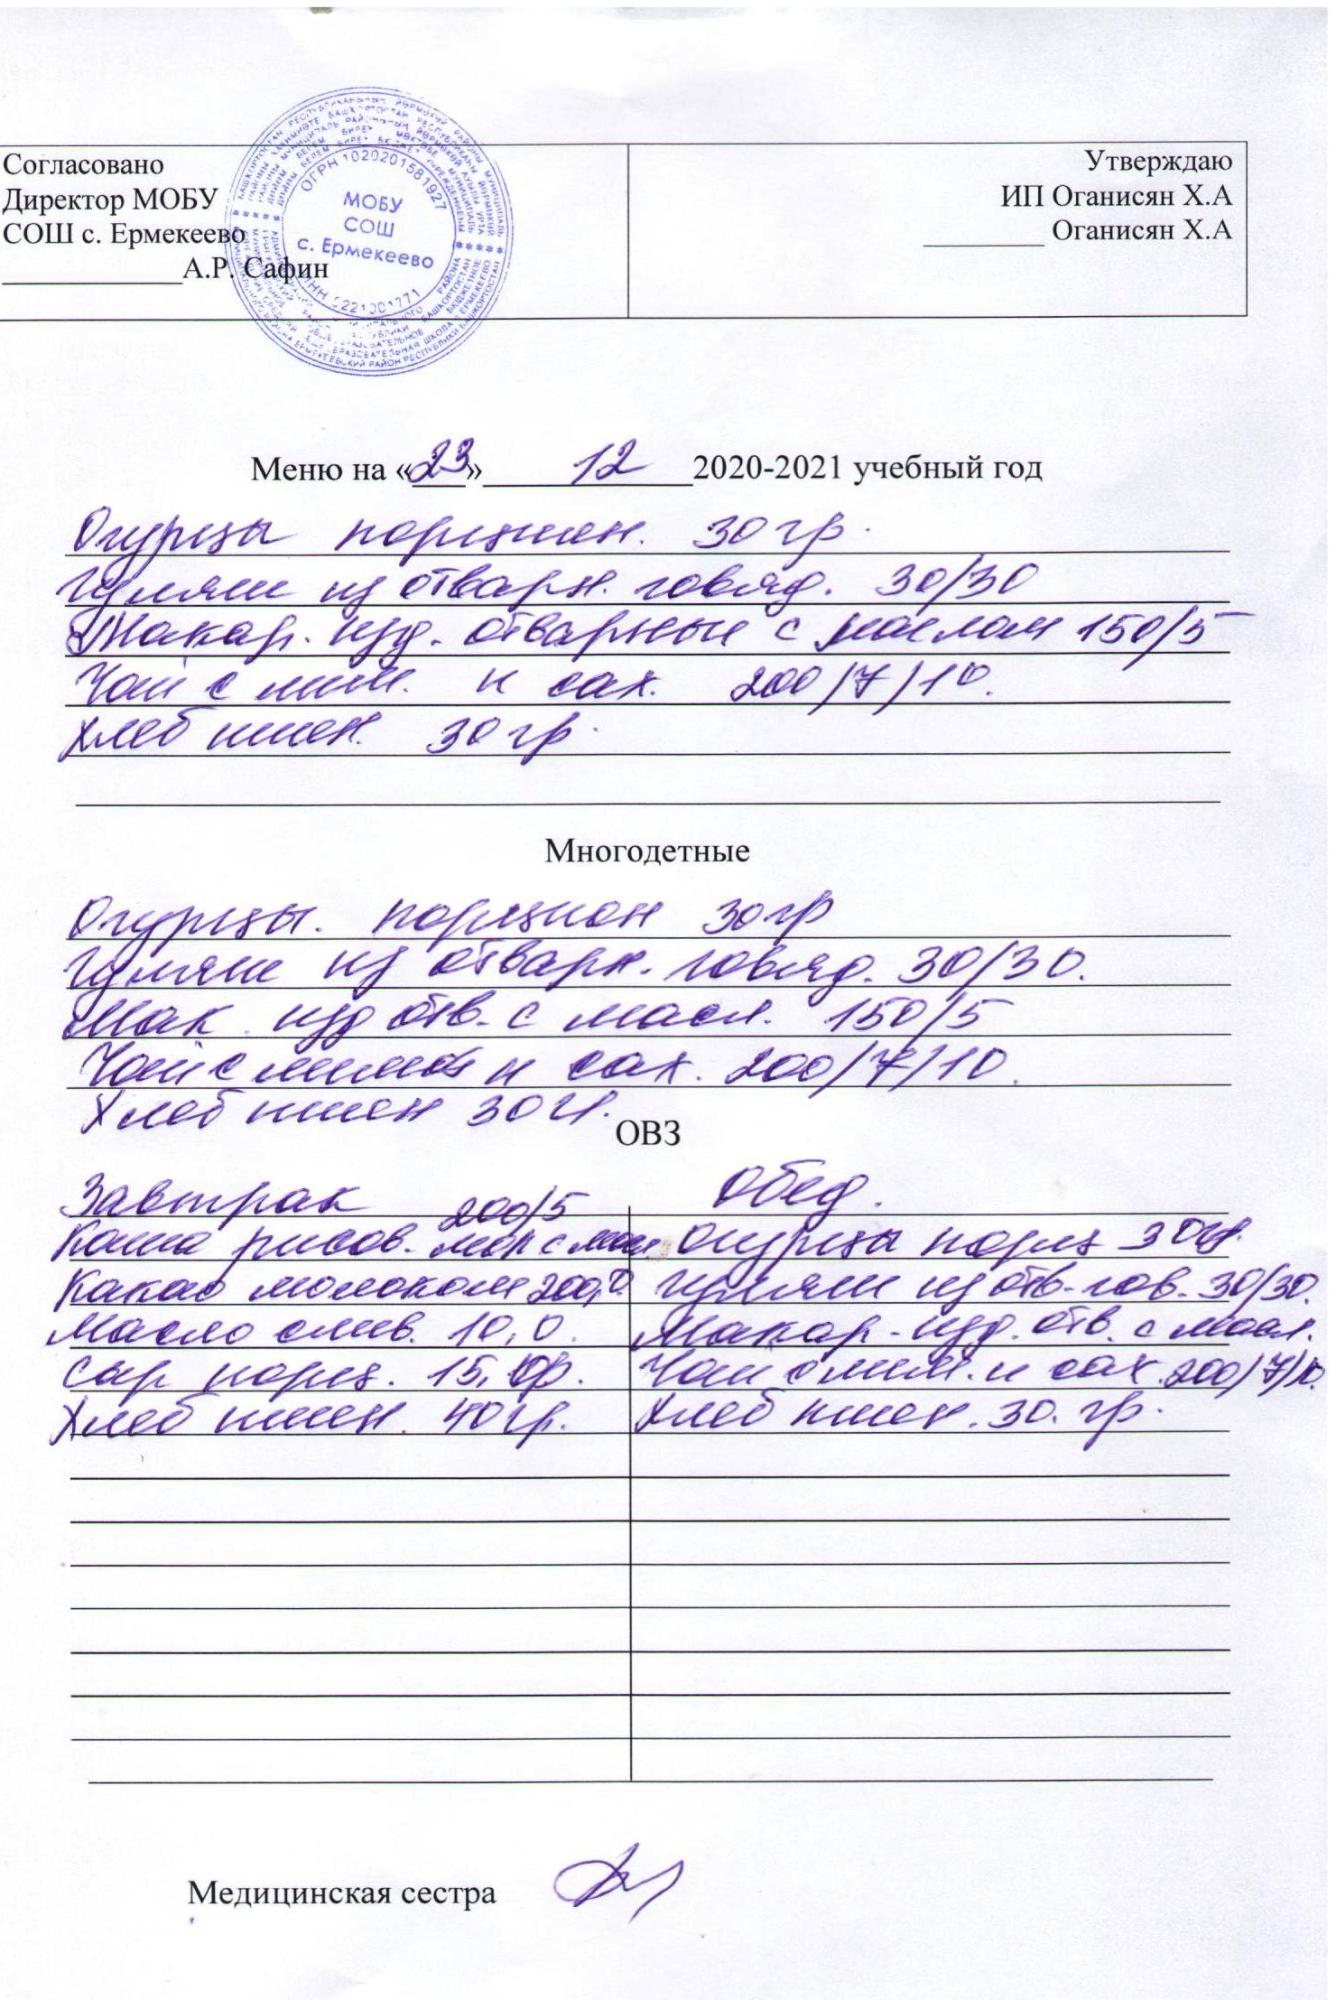 Согласовано
Директор МОБУ
СОШ с. Ермекеево
____________А.Р. Сафин
Утверждаю
ИП Оганисян Х.А
________ Оганисян Х.А
ОГРН 1020201581927
МОБУ
СОШ
с. Ермекеево
Меню на «23» 12 2020-2021 учебный год
Огурцы порцион. 30 гр.
Гуляш из отварн. говяд. 30/30
Макар. изд. отварные с маслом 150/5
Чай с лим. и сах. 200/7/10.
Хлеб пшен. 30 гр.
Многодетные
Огурцы. порцион 30 гр
Гуляш из отварн. говяд. 30/30.
Мак. изд отв. с масл. 150/5
Чай с лимон и сах. 200/7/10.
Хлеб пшен 30 гр.
ОВЗ
Завтрак
200/5
Каша рисов. мол с мас
Какао молоком 200,0.
Масло слив. 10,0.
Сыр порц. 15, гр.
Хлеб пшен. 40 гр.
Обед.
Огурцы порц 30 гр.
Гуляш из отв. гов. 30/30.
Макар. изд. отв. с масл.
Чай с лим. и сах. 200/7/10.
Хлеб пшен. 30. гр.
Медицинская сестра